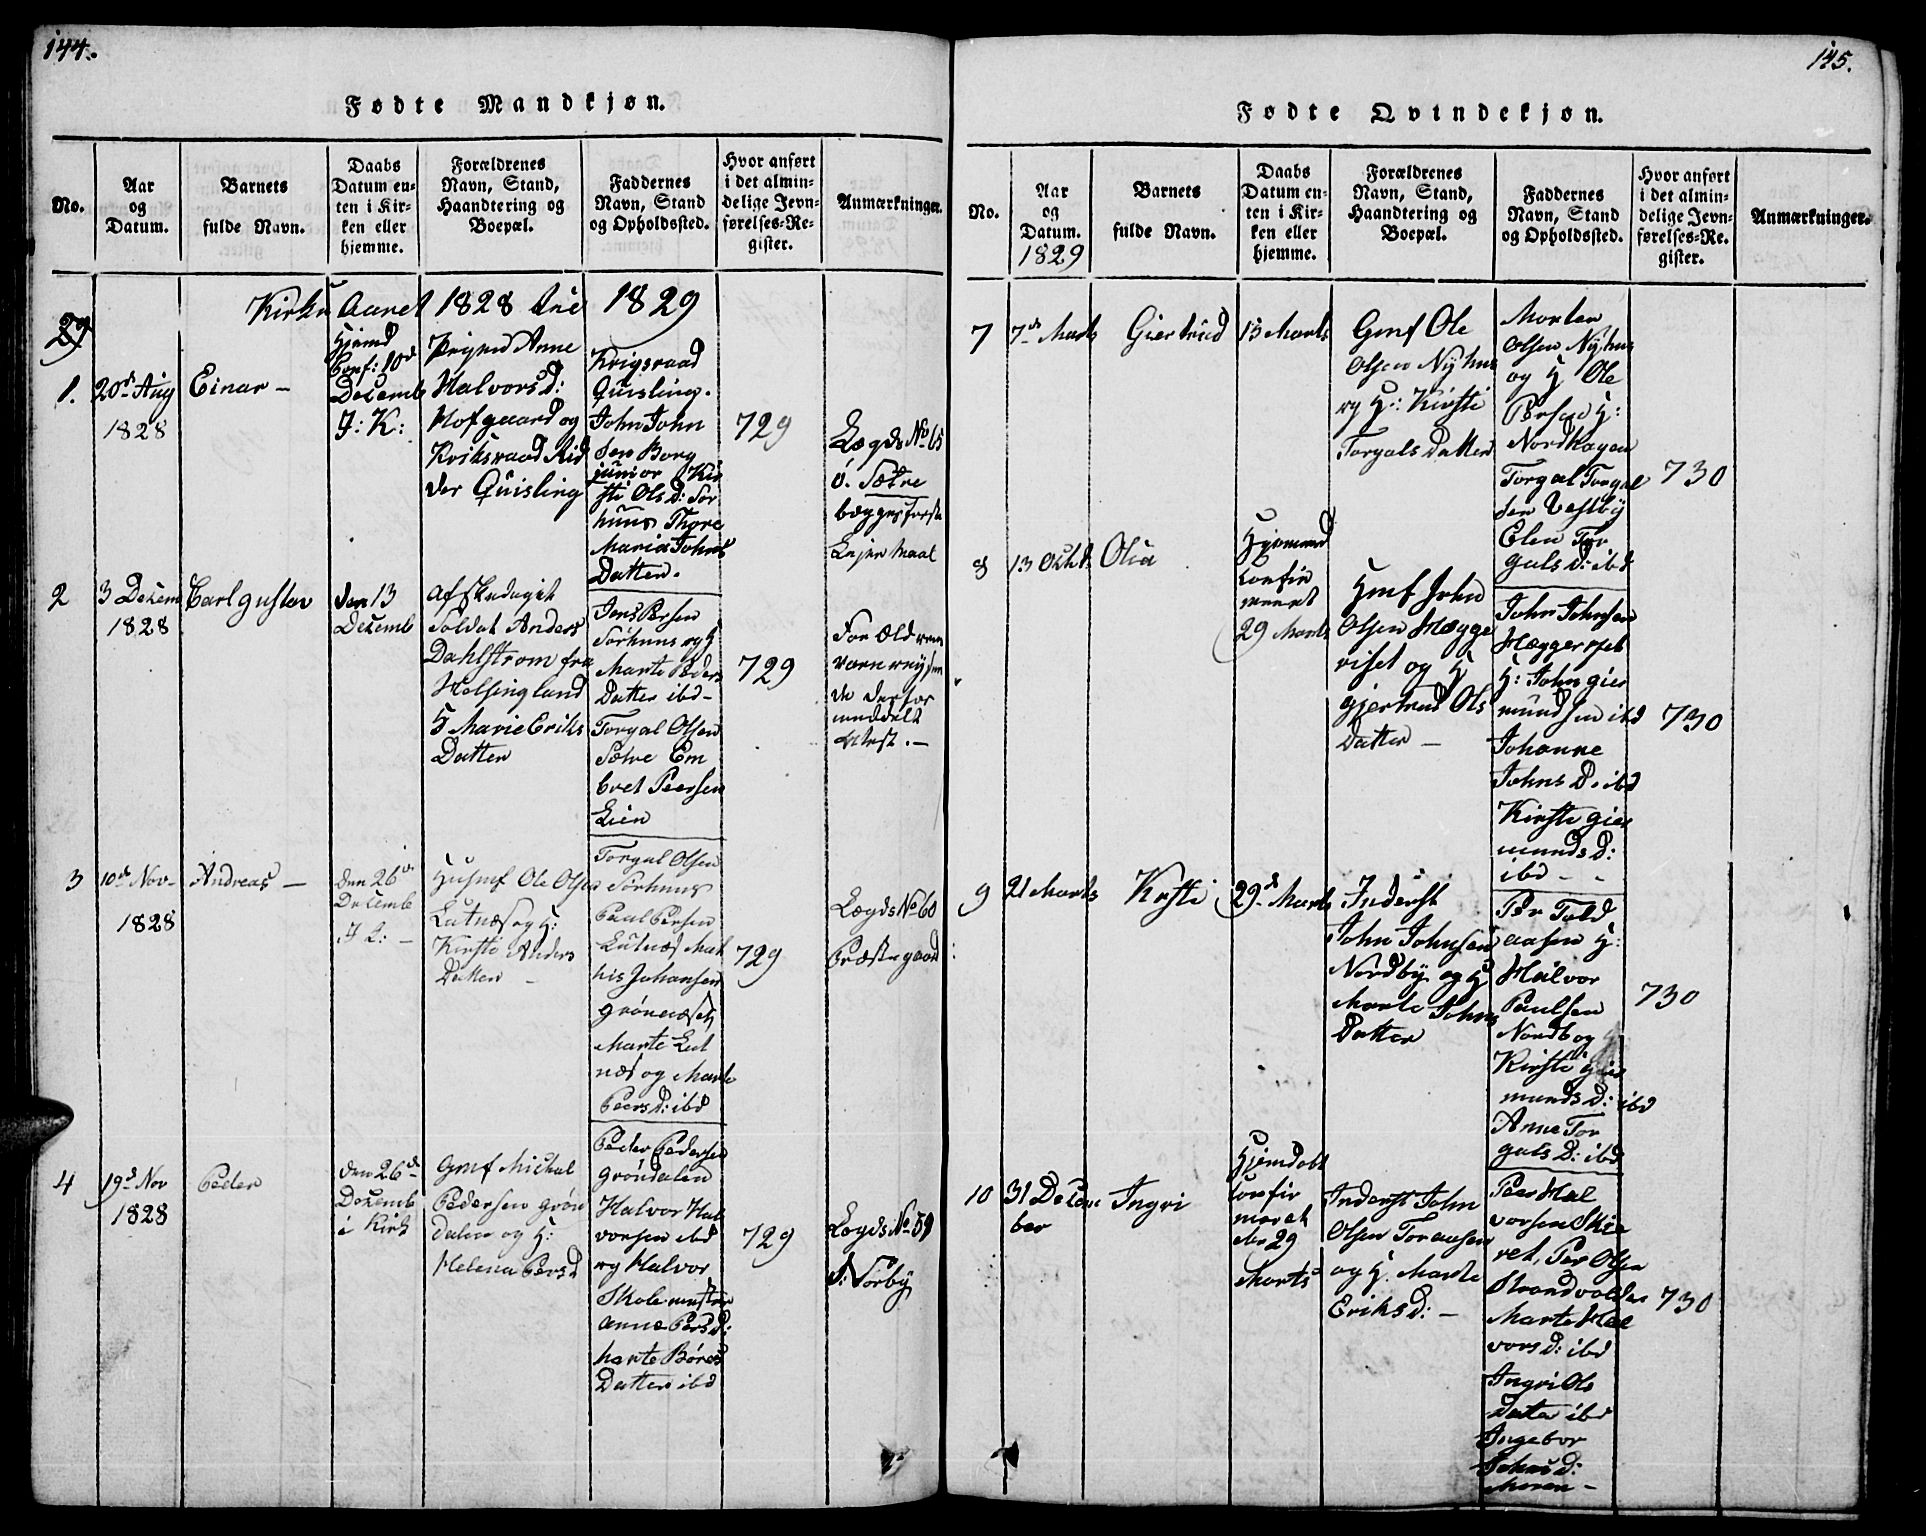 144.
Fødte Mandkjøn.
No.
Aar
og
Datum.
Barnets
fulde Navn.
Daabs
Datum en-
ten i Kir-
ken eller
hjemme.
Forældrenes
Navn, Stand,
Haandtering og
Boepæl.
Faddernes
Navn, Stand
og Opholdssted.
Hvor anført
i det almin-
delige Jevn-
førelses-Re-
gister.
Anmærkninger.
29
Kirke Aaret 1828 til 1829
1.
20d Aug
1828
Einar –
Hjemd
Conf: 10d
Decemb
I: K:
Pigen Anne
Halvorsd:
Hofgaard og
Kriksraad Rid
der Quisling
Krigsraad
Quisling.
John John
sen Borg
junior Kir
sti Olsd: Sør
huus Thore
Maria Johns
Datter.
729
Lægds No 65
ö. Sætre
begges første
Lejermaal
2
3 Decem
1828
Carl gustav
den 13
Decemb
afskediget
Soldat Anders
Dahlstrom fra
Helsingland
H Marie Eriks
Datter
Jens Persen
Sørhuus og H
Marte Peders
Datter ibd –
Torgal Olsen
Sætre Em
bret Peersen
Lien
729
For Æld rene
vare reysen
de derfor
meddelt
Attest. –
3
10d Nov –
1828
Andreas –
den 26d
Decemb
I K: –
Husmf Ole Olsen
Lutnæs og H:
Kirsti Anders
Datter –
Torgal Olsen
Sørhuus
Paul Persen
Lutnæs Mat
his Johansen
grönnæset
Marte Lut
næs og Marte
Peersd: ibd
729
Lægds No 60
Præstegaard
4
19d Nov
1828
Peder
den 26d
Decemb
i Kirk
Gmf Michel
Pedersen grön
dalen og H:
Helena Persd
Peder Pedersen
Gröndalen
Halvor Hal
vorsen ibd
og Halvor
Skolemester
Anne Persd:
Marte Börres
Datter ibd
729
Lægds No 59
S: Sörby
145.
Fødte Qvindekjøn.
No.
Aar
og
Datum.
1829
Barnets
fulde Navn.
Daabs
Datum en-
ten i Kir-
ken eller
hjemme.
Forældrenes
Navn, Stand,
Haandtering og
Boepæl.
Faddernes
Navn, Stand
og Opholdssted.
Hvor anført
i det almin-
delige Jevn-
førelses-Re-
gister.
Anmærkninger.
7
7d Marts
Giertrud
15 Marts
Gmf Ole
Olsen Nyhus
og H: Kirsti
Torgals Datter
Morten
Olsen Nyhus
og H Ole
Persen H:
Nordhagen
Torgal Torgal
sen Vestby
Elen Tor
galsd: ibd
730
8
13 Octb
Olia
Hjemmed
confir
meret
29 Marts
Hmf John
Olsen Hægge
riset og H
gjertrud Ols
Datter –
John Johnsen
Hæggeriset
H: John gier
mundsen ibd
Johanne
Johns D. ibd
Kirsti gier
munds d:
ibd –
730
9
21 Marts
Kirsti
29d Marts
Inderst
John Johnsen
Nordby og H
Marte Johns
Datter
Per Told
aasen H:
Halvor
Paulsen
Nordb og H
Kirsti gier
munds d: ibd
Anne Tor
gals D: ibd
730
10
31 Decem
ber
Ingri
Hjemdøbt
confir
meret
den 29
Marts
Inderst John
Olsen Toraasen
og H. Marte
Eriksd: –
Peer Hal
vorsen Skie
ret, Per Olsen
Strandvolden
Marte Hal
vorsd: ibd
Ingri Ols
Datter ibd
Ingebor
Johnsd:
Moren –
730